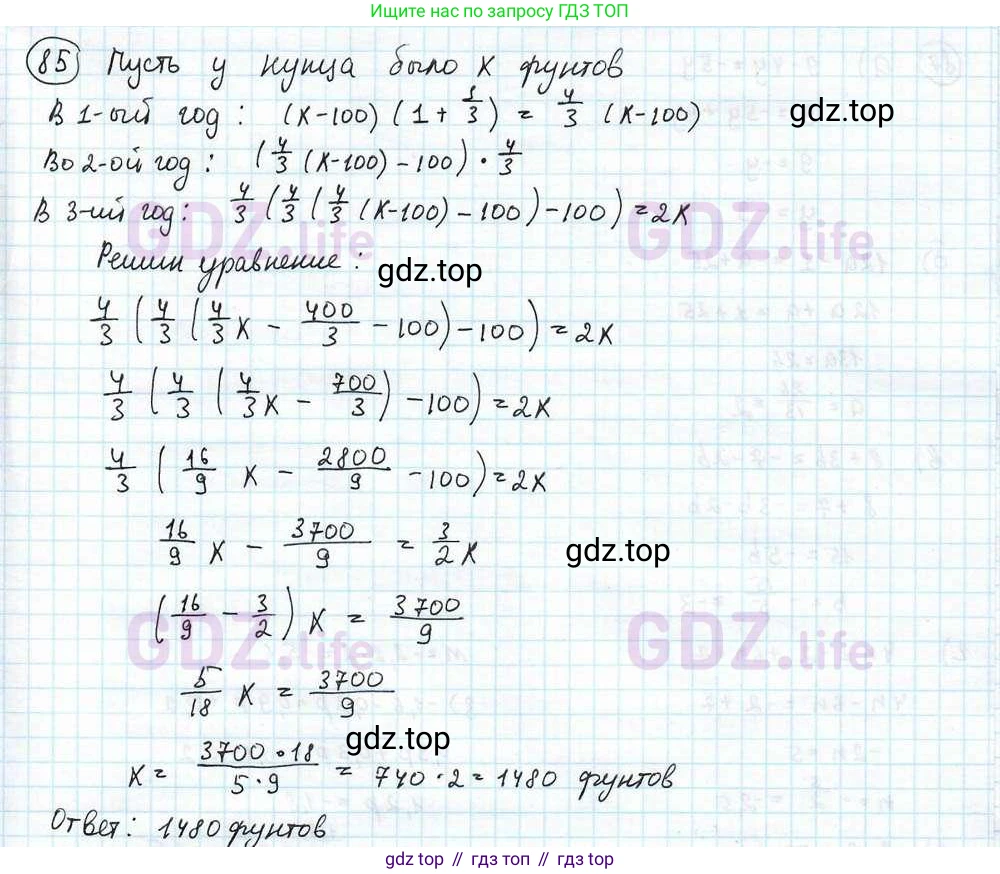 Ищите по запросу ГДЗ ТОП
85 Пусть у купца было x фунтов
В 1-ый год: (x-100)(1+1/3) = 4/3 (x-100)
gdz.top
Во 2-ой год: (4/3 (x-100)-100)·4/3
В 3-ий год: 4/3 (4/3 (4/3 (x-100)-100)-100)=2x
GDZ.life GDZ.life
Решим уравнение:
gdz.top
4/3 (4/3 (4/3 x - 400/3 - 100)-100)=2x
4/3 (4/3 (4/3 x - 700/3) -100)=2x
4/3 (16/9 x - 2800/9 -100)=2x
16/9 x - 3700/9 = 3/2 x
gdz.top
(16/9 - 3/2) x = 3700/9
GDZ.life GDZ.life
5/18 x = 3700/9
gdz.top
x = 3700·18/5·9 = 740·2=1480 фунтов
Ответ: 1480 фунтов
gdz top // гдз топ // гдз top